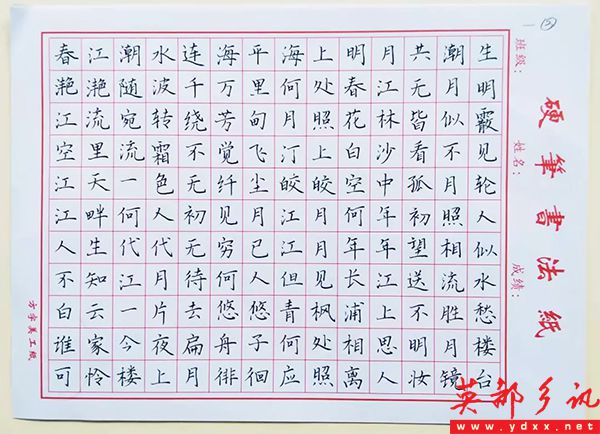 ⑤
春江潮水连海平海上明月共潮生
滟滟随波千万里何处春江无月明
江流宛转绕芳甸月照花林皆似霰
空里流霜不觉飞汀上白沙看不见
江天一色无纤尘皎皎空中孤月轮
江畔何人初见月江月何年初照人
人生代代无穷已江月年年望相似
不知江月待何人但见长江送流水
白云一片去悠悠青枫浦上不胜愁
谁家今夜扁舟子何处相思明月楼
可怜楼上月徘徊应照离人妆镜台
班级: 姓名: 成绩:
硬筆書法紙
方字美工纸
英都乡讯
www.ydxx.net